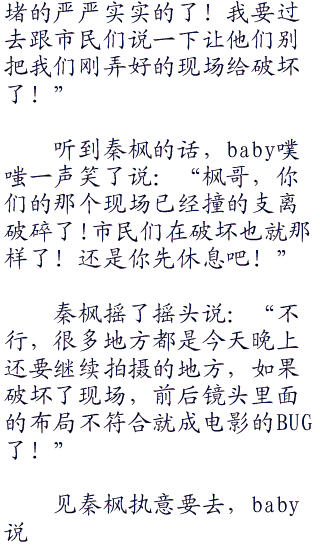 堵的严严实实的了！我要过
去跟市民们说一下让他们别
把我们刚弄好的现场给破坏
了！”
听到秦枫的话，baby噗
嗤一声笑了说：“枫哥，你
们的那个现场已经撞的支离
破碎了！市民们在破坏也就那
样了！还是你先休息吧！”
秦枫摇了摇头说：“不
行，很多地方都是今天晚上
还要继续拍摄的地方，如果
破坏了现场，前后镜头里面
的布局不符合就成电影的BUG
了！”
见秦枫执意要去，baby
说